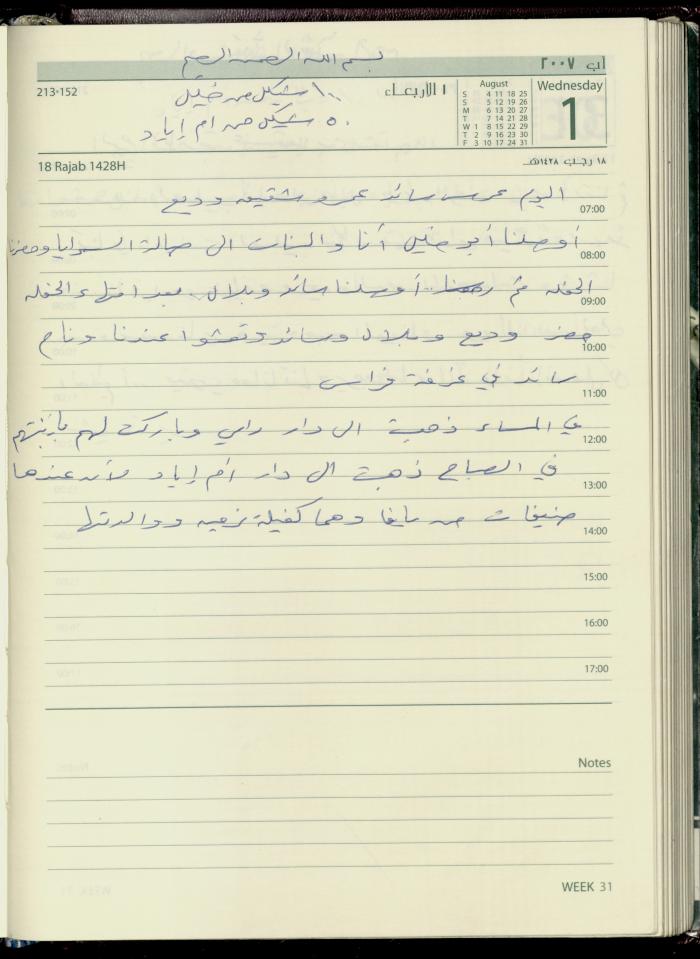 بسم الله الرحمن الرحيم
آب ٢٠٠٧
213-152
١٠٠ شيكل من خليل
٥٠ شيكل من ام إياد
١ الأربعاء
August
S 4 11 18 25
S 5 12 19 26
M 6 13 20 27
T 7 14 21 28
W 1 8 15 22 29
T 2 9 16 23 30
F 3 10 17 24 31
Wednesday
1
18 Rajab 1428H
١٨ رجب ١٤٢٨هـ
اليوم عرس سائد عمر و شقيقه وديع
07:00
أوصلنا أبو خليل أنا والبنات الى صالة السرايا وحضرنا
08:00
الحفله ثم أوصلنا سائد وبلال بعد انتهاء الحفله
09:00
حضر وديع وبلال وسائد وتعشوا عندنا ونام
10:00
سائد في غرفة فراس
11:00
في المساء ذهبت الى دار رامي وباركت لهم
12:00
في الصباح ذهبت الى دار أم إياد لأنه عندها
13:00
ضيفات من يافا وهما كفيلة نزيه ووالدتها
14:00
15:00
16:00
17:00
Notes
WEEK 31